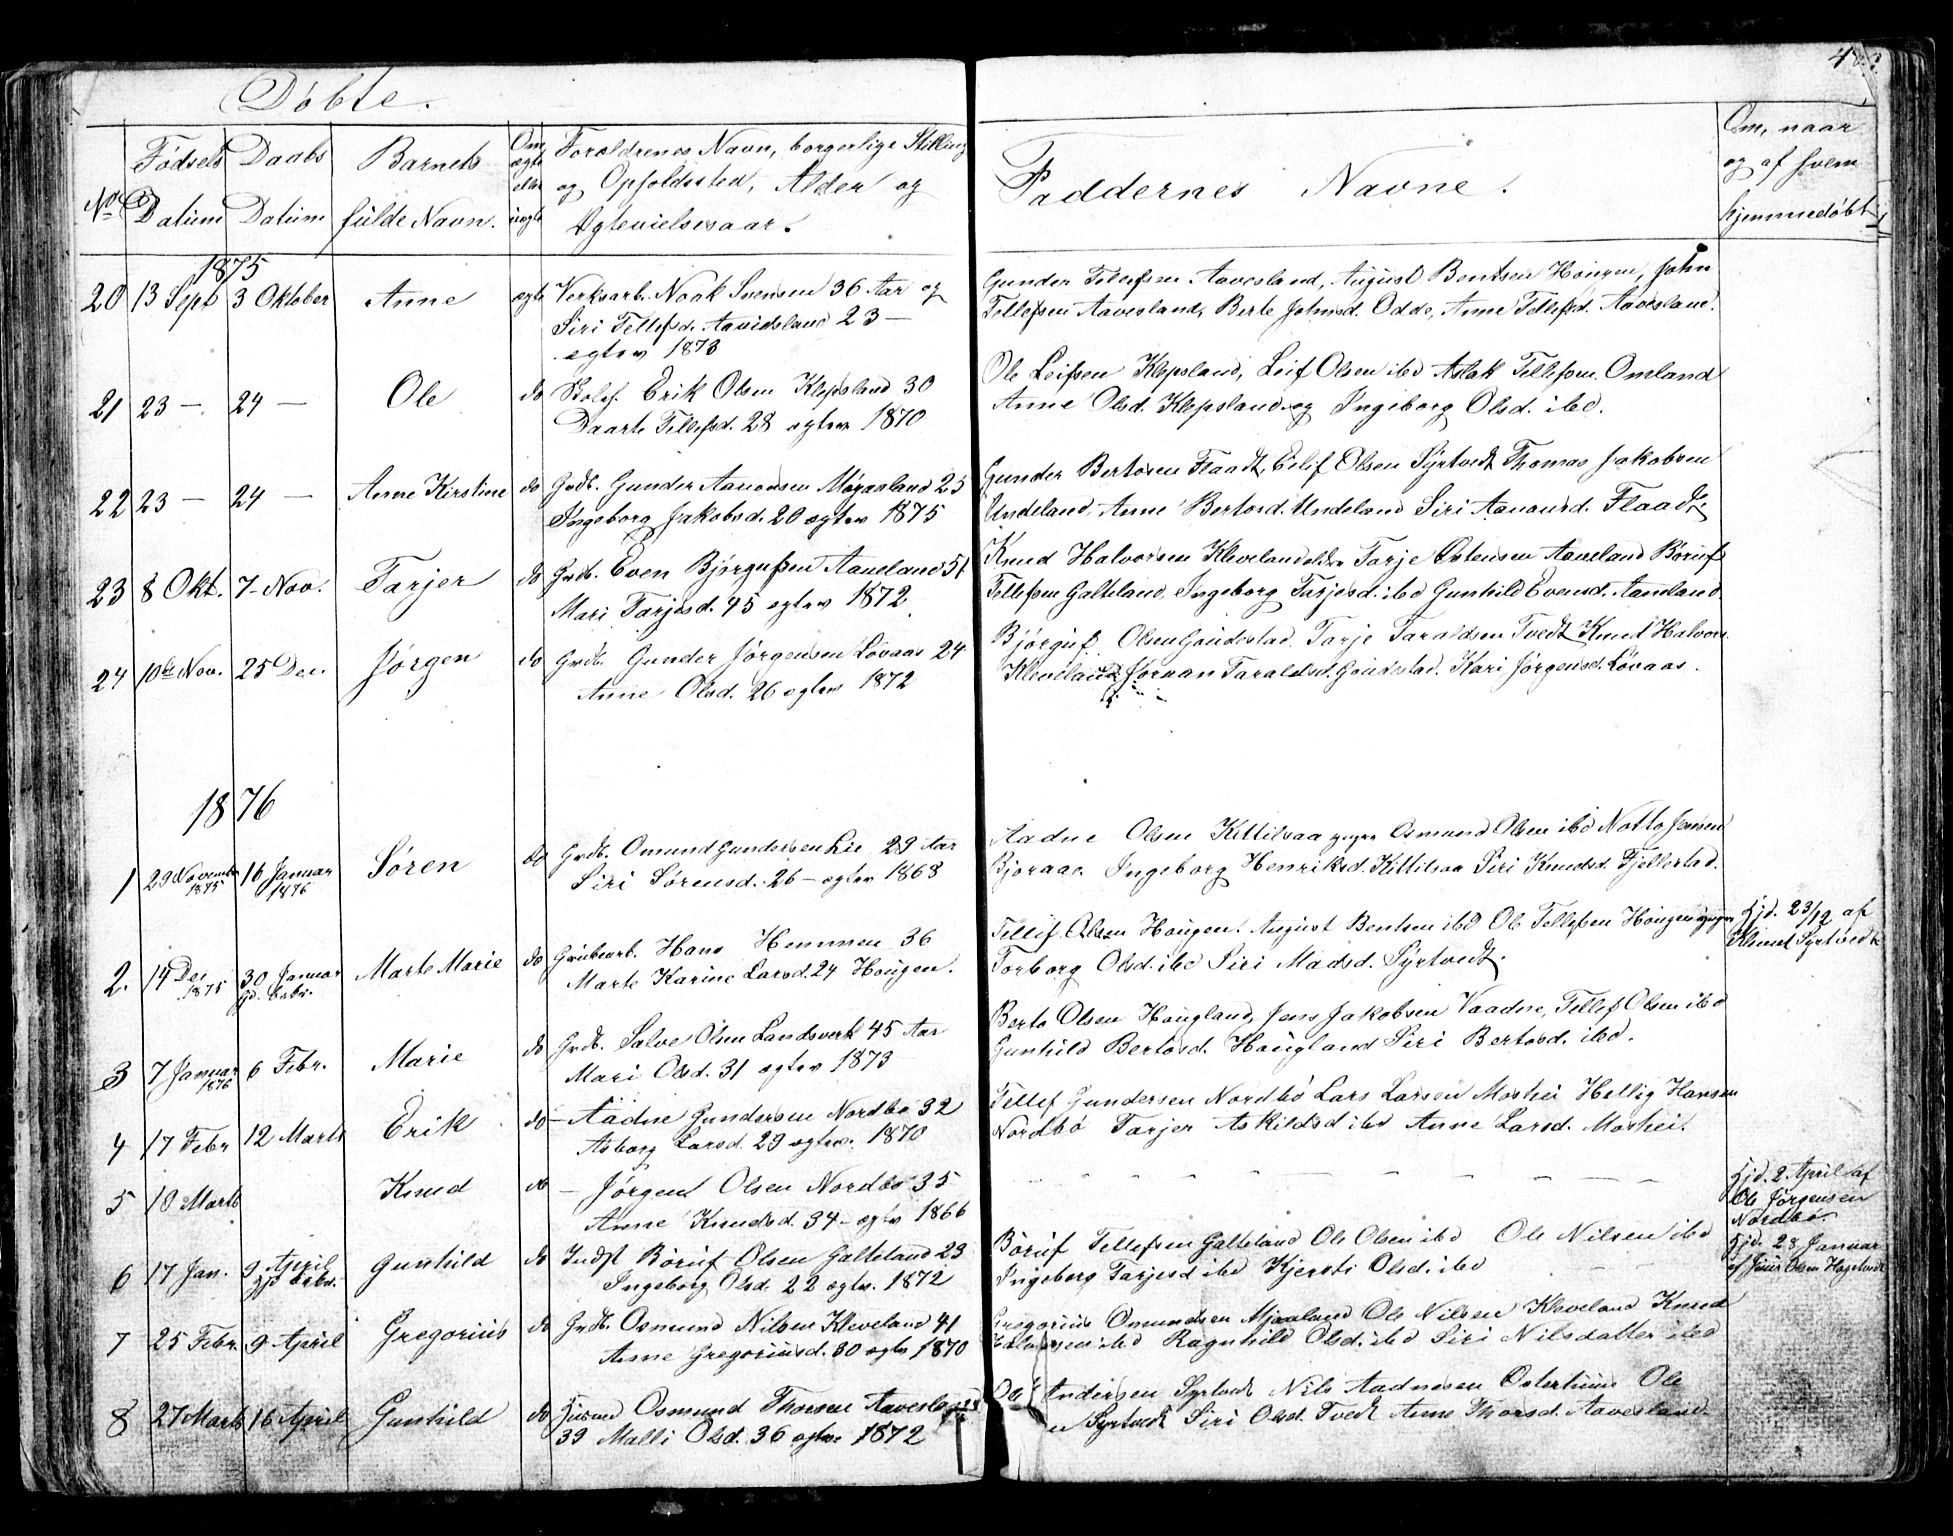 Døbte.
No
Fødsels Datum
Daabs Datum
Barnets fulde Navn.
Om ægte eller uægte
Forældrenes Navn, borgerlige Stilling
og Opholdssted, Alder og
Ægtevielsesaar.
Faddernes Navne.
Om, naar
og af hvem
hjemmedøbt
1875
20 13 Sept 3 Oktober Anne ægte Verksarb. Noak Svensen 36 Aar og
Siri Tellefsd. Aavidsland 23 —
egtev 1873
Gunder Tellefsen Aavesland, August Bentsen Hougen, John
Tellefsen Aavesland, Berte Johnsd. Odde, Anne Tellefsd. Aavesland.
21 23 — 24 — Ole do Erik Olsen Klepsland 30
Daarte Tellefsd. 28 egtev 1870
Ole Leifsen Klepsland, Leif Olsen ibd Aslak Tellefsen Omland
Anne Olsd. Klepsland og Ingeborg Olsd. ibd.
22 23 — 24 — Anne Kirstine do Grdb. Gunder Aanonsen Møgaaland 25
Ingeborg Jakobsd. 20 ægtev 1875
Gunder Bertosen Flaadt, Eilif Olsen Syrtvedt Thomas Jakobsen
Undeland, Anne Bertosd. Undeland Siri Aanonsd. Flaadt.
23 8 Okt. 7 Nov. Tarjer do Grdb. Even Bjørgufsen Aaneland 51
Mari Tarjesd. 45 egtev 1872
Knud Halvorsen Kleveland Tarje Østensen Aaneland Børuf
Tellefsen Galteland, Ingeborg Tarjesd. ibd Gunhild Evensd. Aaneland
24 10de Nov. 25 Dec. Jørgen do Grdb. Gunder Jørgensen Løvaas 24
Anne Olsd. 26 egtev 1872
Bjørguf Olsen Gaudestad. Tarje Taraldsen Tvedt Knud Halvors.
Kleveland, Joraan Taraldsd. Gaudestad. Kari Jørgensd. Løvaas.
1876
1 29 November 1875 16 Januar 1876 Søren do Grdb. Omund Gundersen Lie 29 Aar
Siri Sørensd. 26 — egtev 1868
Aadne Olsen Kittilsaa yngre Osmund Olsen ibd Notto Jensen
Bjoraae. Ingeborg Henriksd. Kittilsaa Siri Knudsd. Fjellestad.
2. 14 Dec 1875 30 Januar hjd. bekr. Marte Marie do Grubearb. Hans Hemmen 36
Marte Karine Larsd. 24 Hougen.
Tellif Olsen Hougen. August Bentsen ibd Ole Tellefsen Hougen yngre
Torborg Olsd. ibd Siri Madsd. Syrtvedt.
Hjd. 23/12 af
Knud Syrtvedt
3 7 Januar 1876 6 Febr. Marie do Grdb. Salve Olsen Landsverk 45 Aar
Mari Olsd. 31 ægtev 1873
Berto Olsen Hougland, Jens Jakobsen Vaadne, Tellef Olsen ibd
Gunhild Bertosd. Hougland Siri Bertosd. ibd.
4 17 Febr 12 Marts Erik do — Aadne Gundersen Nordbø 32
Asborg Larsd. 29 egtev. 1870
Tellef Gundersen Nordbø Lars Larsen Moshei Hellig Hansen
Nordbø Tarjer Askildsd ibd Anne Larsd. Moshei.
5 10 Marts Knud do — Jørgen Olsen Nordbø 35
Anne Knudsd. 34 — egtv 1866
— — — — — — — —
Hjd. 2. April af
Ole Jørgensen
Nordbø.
6 17 Jan. 9 April hjd bekr. Gunhild do Indst Børuf Olsen Galteland 23
Ingeborg Olsd. 22 egtv. 1872
Børuf Tellefsen Galteland Ole Olsen ibd Ole Nilsen ibd
Ingeberg Tarjesd ibd Kjersti Olsd. ibd
Hjd. 28 Januar
af Olsen
7 25 Febr. 9 April Gregorius do Grdb. Osmund Nilsen Kleveland 41
Anne Gregoriusd. 30 egtv 1870
Gregorius Omundsen Mjaaland Ole Nilsen Kleveland Knud
Halvorsen ibd Ragnhild Olsd. ibd Siri Nilsdatter ibd
8 27 Marts 16 April Gunhild do Husmd Osmund Thorsen Aavesland
39 Malli Olsd. 36 egtv. 1872
Ole Andersen Syrtvedt Nils Aadnesen Osterhuus Ole
Syrtvedt Siri Olsd. Tvedt Anne Thorsd. Aavesland